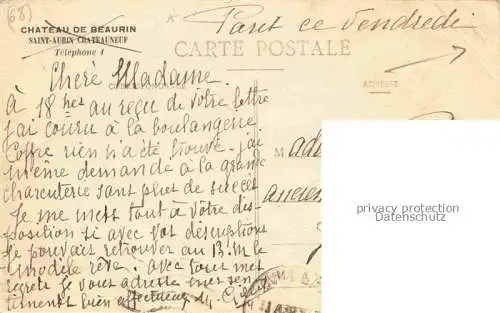 (68)
CHATEAU DE BEAURIN
SAINT-AUBIN-CHATEAUNEUF
Téléphone 1
Paris ce Vendredi
CARTE POSTALE
ADRESSE
Chère Madame
à 18 hes au reçu de votre lettre
j'ai couru à la boulangerie
Coffre rien n'a été trouvé. j'ai
même demandé à la grande
charcuterie sans plus de succès
Je me mets tout à votre dis
position si avec vos descriptions
je pouvais retrouver au 13. m le
modèle rêvé. avec tous mes
regrets je vous adresse mes sen
timents bien affectueux
M
privacy protection
Datenschutz